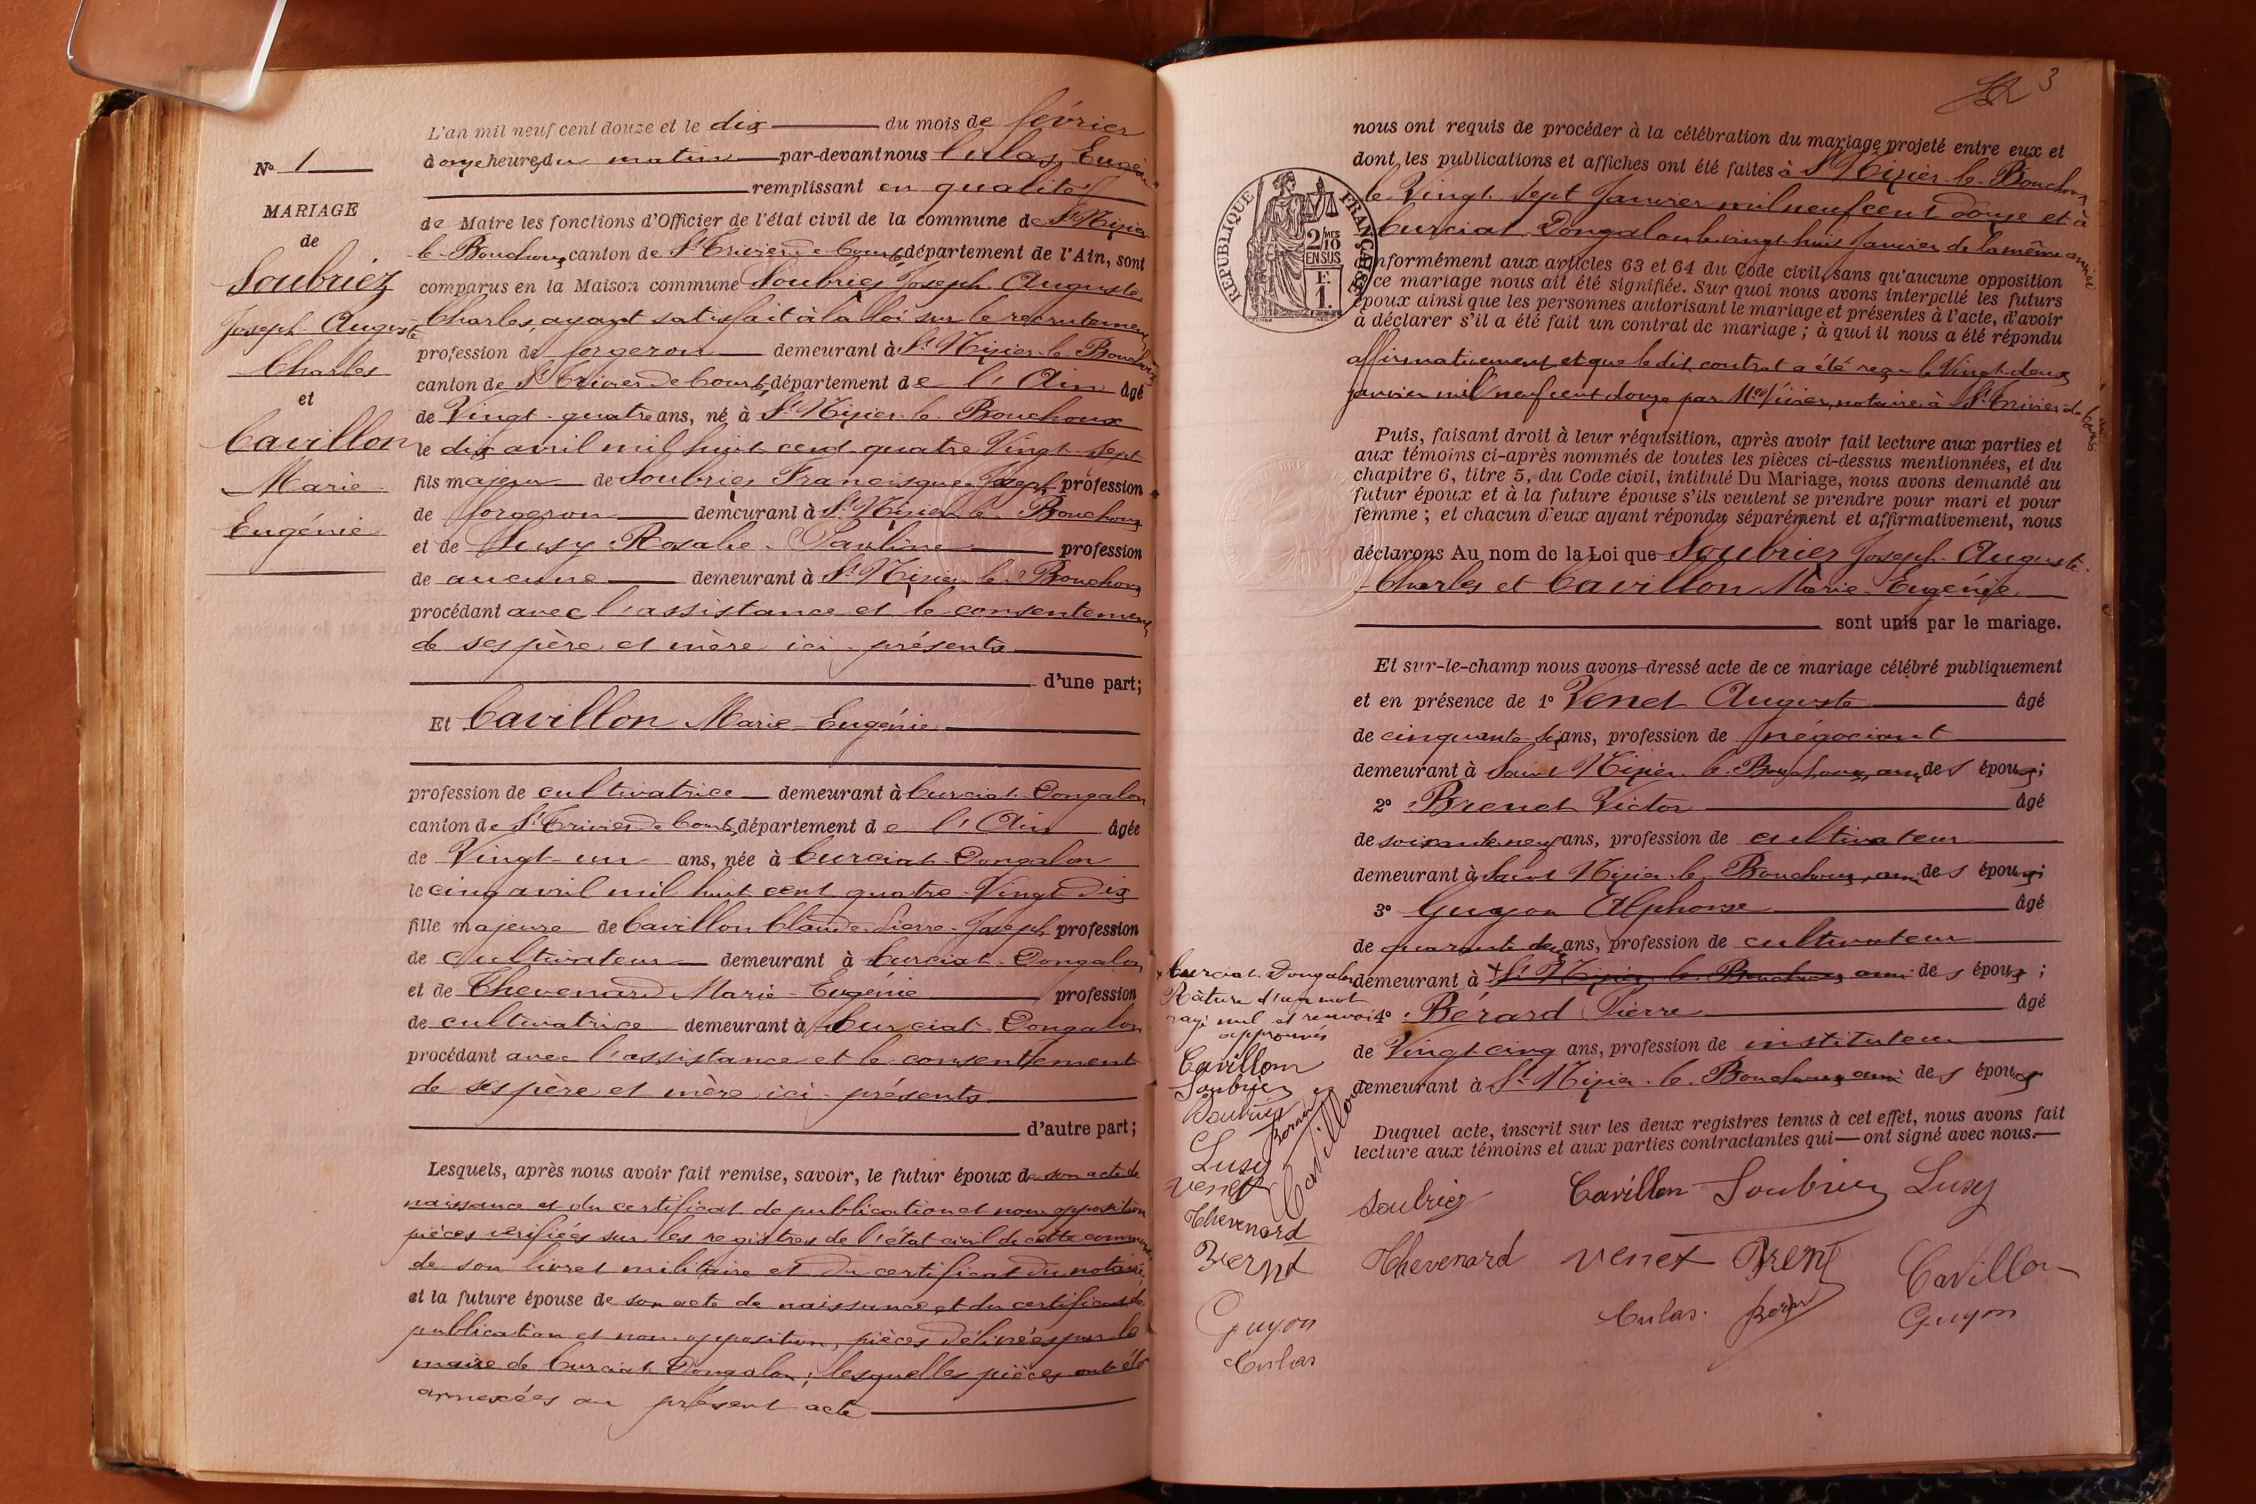 N° 1
MARIAGE
de
Soubriez
Joseph Auguste
Charles
et
Cavillon
Marie
Eugénie
L'an mil neuf cent douze et le dix du mois de février
à onze heures du matin par-devant nous Culas, Eugène
remplissant en qualité
de Maire les fonctions d'Officier de l'état civil de la commune de St Nizier
le Bouchoux canton de St Trivier de Courtes département de l'Ain, sont
comparus en la Maison commune Soubriez Joseph Auguste
Charles, ayant satisfait à la loi sur le recrutement
profession de forgeron demeurant à St Nizier le Bouchoux
canton de St Trivier de Courtes, département de l'Ain âgé
de Vingt-quatre ans, né à St Nizier le Bouchoux
le dix avril mil huit cent quatre Vingt sept
fils majeur de Soubriez Francisque Joseph profession
de forgeron demeurant à St Nizier le Bouchoux
et de Lusy Rosalie Pauline profession
de aucune demeurant à St Nizier le Bouchoux
procédant avec l'assistance et le consentement
de ses père et mère ici présents
d'une part;
Et Cavillon Marie Eugénie
profession de cultivatrice demeurant à Curciat Dongalon
canton de St Trivier de Courtes, département de l'Ain âgée
de Vingt un ans, née à Curciat Dongalon
le cinq avril mil huit cent quatre Vingt dix
fille majeure de Cavillon Claude Pierre Joseph profession
de cultivateur demeurant à Curciat Dongalon
et de Chevenard Marie Eugénie profession
de cultivatrice demeurant à Curciat Dongalon
procédant avec l'assistance et le consentement
de ses père et mère ici présents
d'autre part;
Lesquels, après nous avoir fait remise, savoir, le futur époux de son acte de
naissance et du certificat de publication et non opposition
pièces vérifiées sur les registres de l'état civil de cette commune
de son livret militaire et du certificat du notaire,
et la future épouse de son acte de naissance et du certificat de
publication et non opposition, pièces délivrées par le
maire de Curciat Dongalon; lesquelles pièces ont été
annexées au présent acte
3
nous ont requis de procéder à la célébration du mariage projeté entre eux et
dont les publications et affiches ont été faites à St Nizier le Bouchoux
le Vingt sept Janvier mil neuf cent douze et à
Curciat Dongalon le vingt huit Janvier de la même année
conformément aux articles 63 et 64 du Code civil, sans qu'aucune opposition
à ce mariage nous ait été signifiée. Sur quoi nous avons interpellé les futurs
époux ainsi que les personnes autorisant le mariage et présentes à l'acte, d'avoir
à déclarer s'il a été fait un contrat de mariage; à quoi il nous a été répondu
affirmativement et que le dit contrat a été reçu le Vingt deux
janvier mil neuf cent douze par Me notaire à St Trivier de Courtes
RÉPUBLIQUE FRANÇAISE
2/10 EN SUS
F.
1.
Puis, faisant droit à leur réquisition, après avoir fait lecture aux parties et
aux témoins ci-après nommés de toutes les pièces ci-dessus mentionnées, et du
chapitre 6, titre 5, du Code civil, intitulé Du Mariage, nous avons demandé au
futur époux et à la future épouse s'ils veulent se prendre pour mari et pour
femme; et chacun d'eux ayant répondu séparément et affirmativement, nous
déclarons Au nom de la Loi que Soubriez Joseph Auguste
Charles et Cavillon Marie Eugénie
sont unis par le mariage.
Et sur-le-champ nous avons dressé acte de ce mariage célébré publiquement
et en présence de 1° Venet Auguste âgé
de cinquante six ans, profession de négociant
demeurant à Saint Nizier le Bouchoux, ami des époux;
2° Brenet Victor âgé
de soixante neuf ans, profession de cultivateur
demeurant à Saint Nizier le Bouchoux, ami des époux;
3° Guyon Alphonse âgé
de quarante deux ans, profession de cultivateur
demeurant à St Nizier le Bouchoux ami des époux;
4° Bérard Pierre âgé
de Vingt cinq ans, profession de instituteur
demeurant à St Nizier le Bouchoux ami des époux
Duquel acte, inscrit sur les deux registres tenus à cet effet, nous avons fait
lecture aux témoins et aux parties contractantes qui ont signé avec nous.
Soubriez Cavillon Soubriez Lusy
Chevenard Venet Brenet Cavillon
Culas Guyon
Curciat Dongalon
Râture d'un mot
rayé nul et renvoi
approuvés
Cavillon
Soubriez
Soubriez
Lusy
Venet
Cavillon
Chevenard
Guyon
Culas